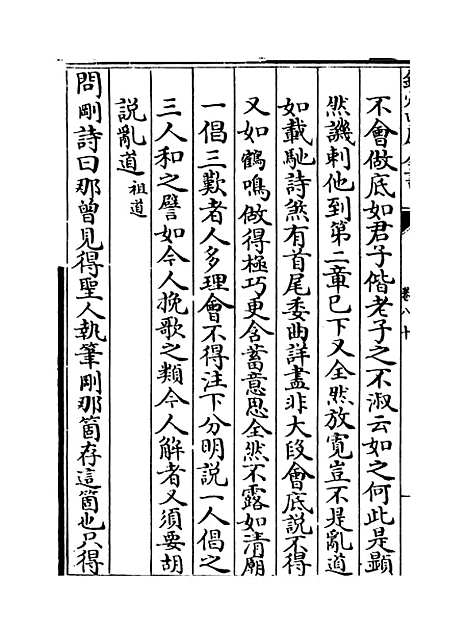 卷八十
不會做底如君子偕老子之不淑云如之何此是顯
然譏刺他到第二章已下又全然放寛豈不是亂道
如載馳詩煞有首尾委曲詳盡非大段會底說不得
又如鶴鳴做得極巧更含蓄意思全然不露如清廟
一倡三歎者人多理會不得注下分明說一人倡之
三人和之譬如今人挽歌之類今人解者又須要胡
說亂道祖道
問刪詩曰那曾見得聖人執筆刪那箇存這箇也只得